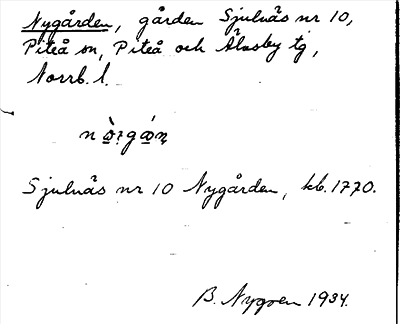 Nygården, gården Sjulnäs nr 10,
Piteå sn, Piteå och Älvsby tg,
Norrb. l.
Sjulnäs nr 10 Nygården, kb. 1770.
B. Nygren 1934.